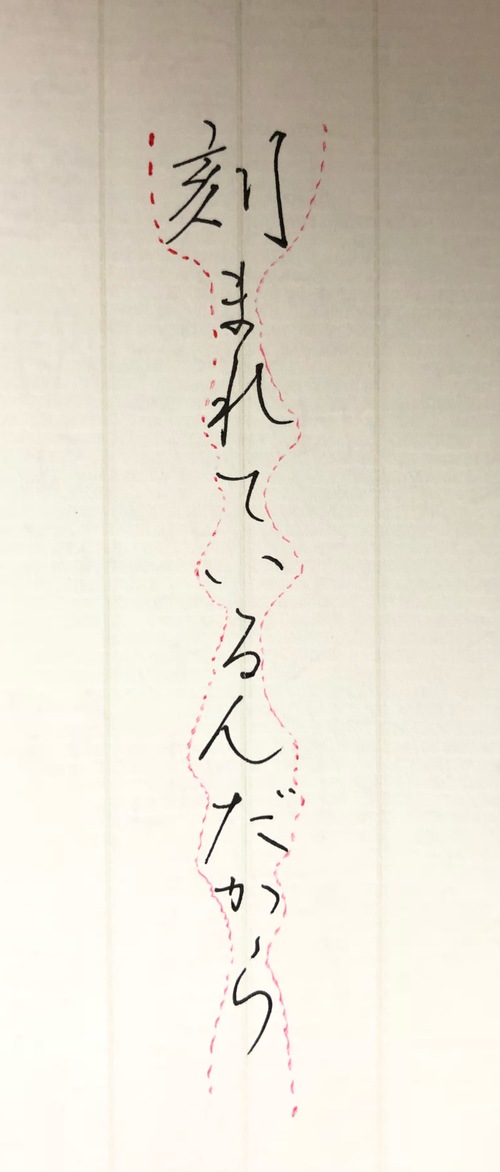 刻まれているんだから